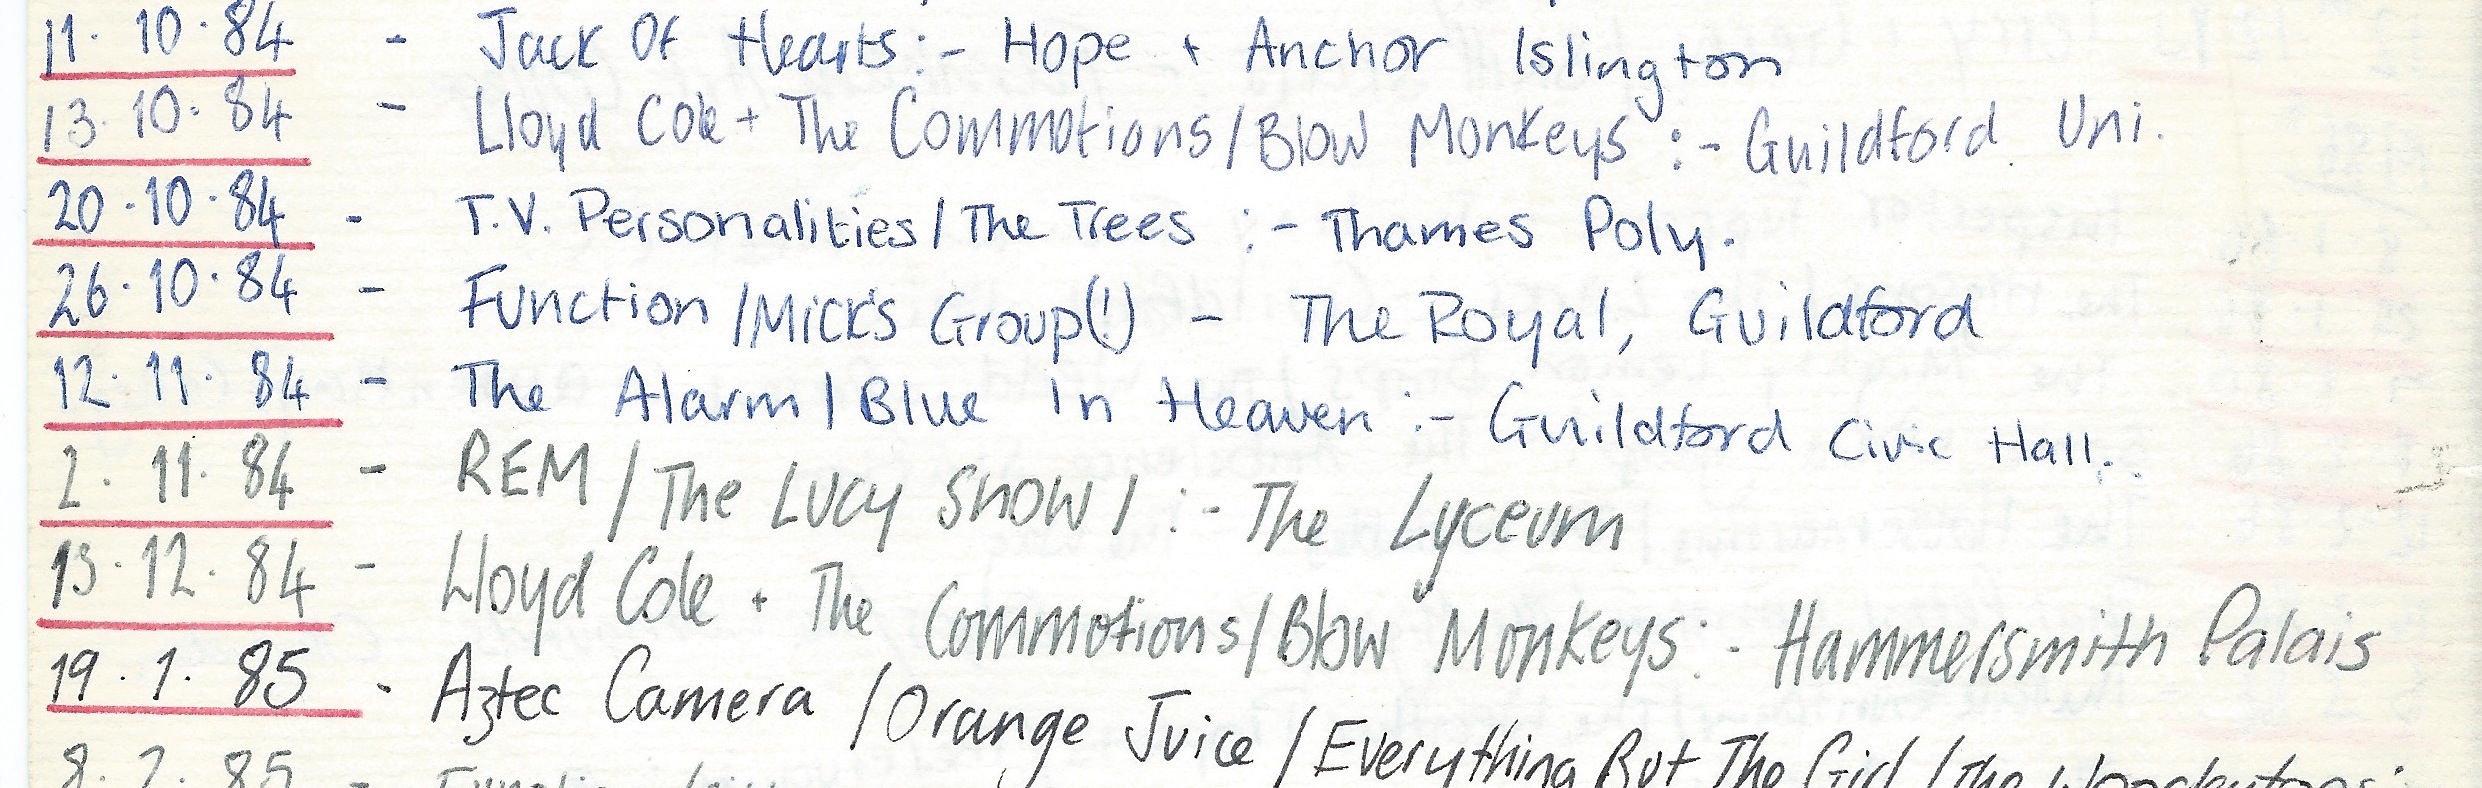 11. 10. 84 - Jack Of Hearts :- Hope + Anchor Islington
13. 10. 84 - Lloyd Cole + The Commotions / Blow Monkeys :- Guildford Uni.
20. 10. 84 - T.V. Personalities / The Trees :- Thames Poly.
26. 10. 84 - Function / Mick's Group (!) - The Royal, Guildford
12. 11. 84 - The Alarm / Blue In Heaven :- Guildford Civic Hall.
2. 11. 84 - REM / The Lucy Show / :- The Lyceum
13. 12. 84 - Lloyd Cole + The Commotions / Blow Monkeys :- Hammersmith Palais
19. 1. 85 - Aztec Camera / Orange Juice / Everything But The Girl / The Woodentops :
8. 2. 85 - Function /